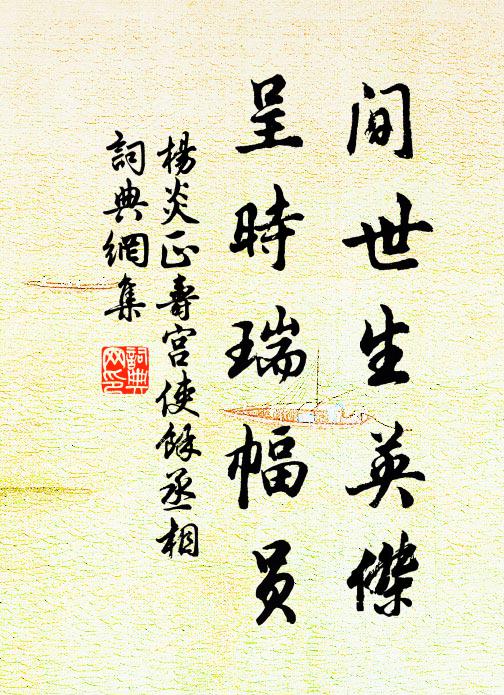 间世生英傑
呈時瑞幅员
楊炎正壽宫使餘丞相
詞典網集
詞典
网印